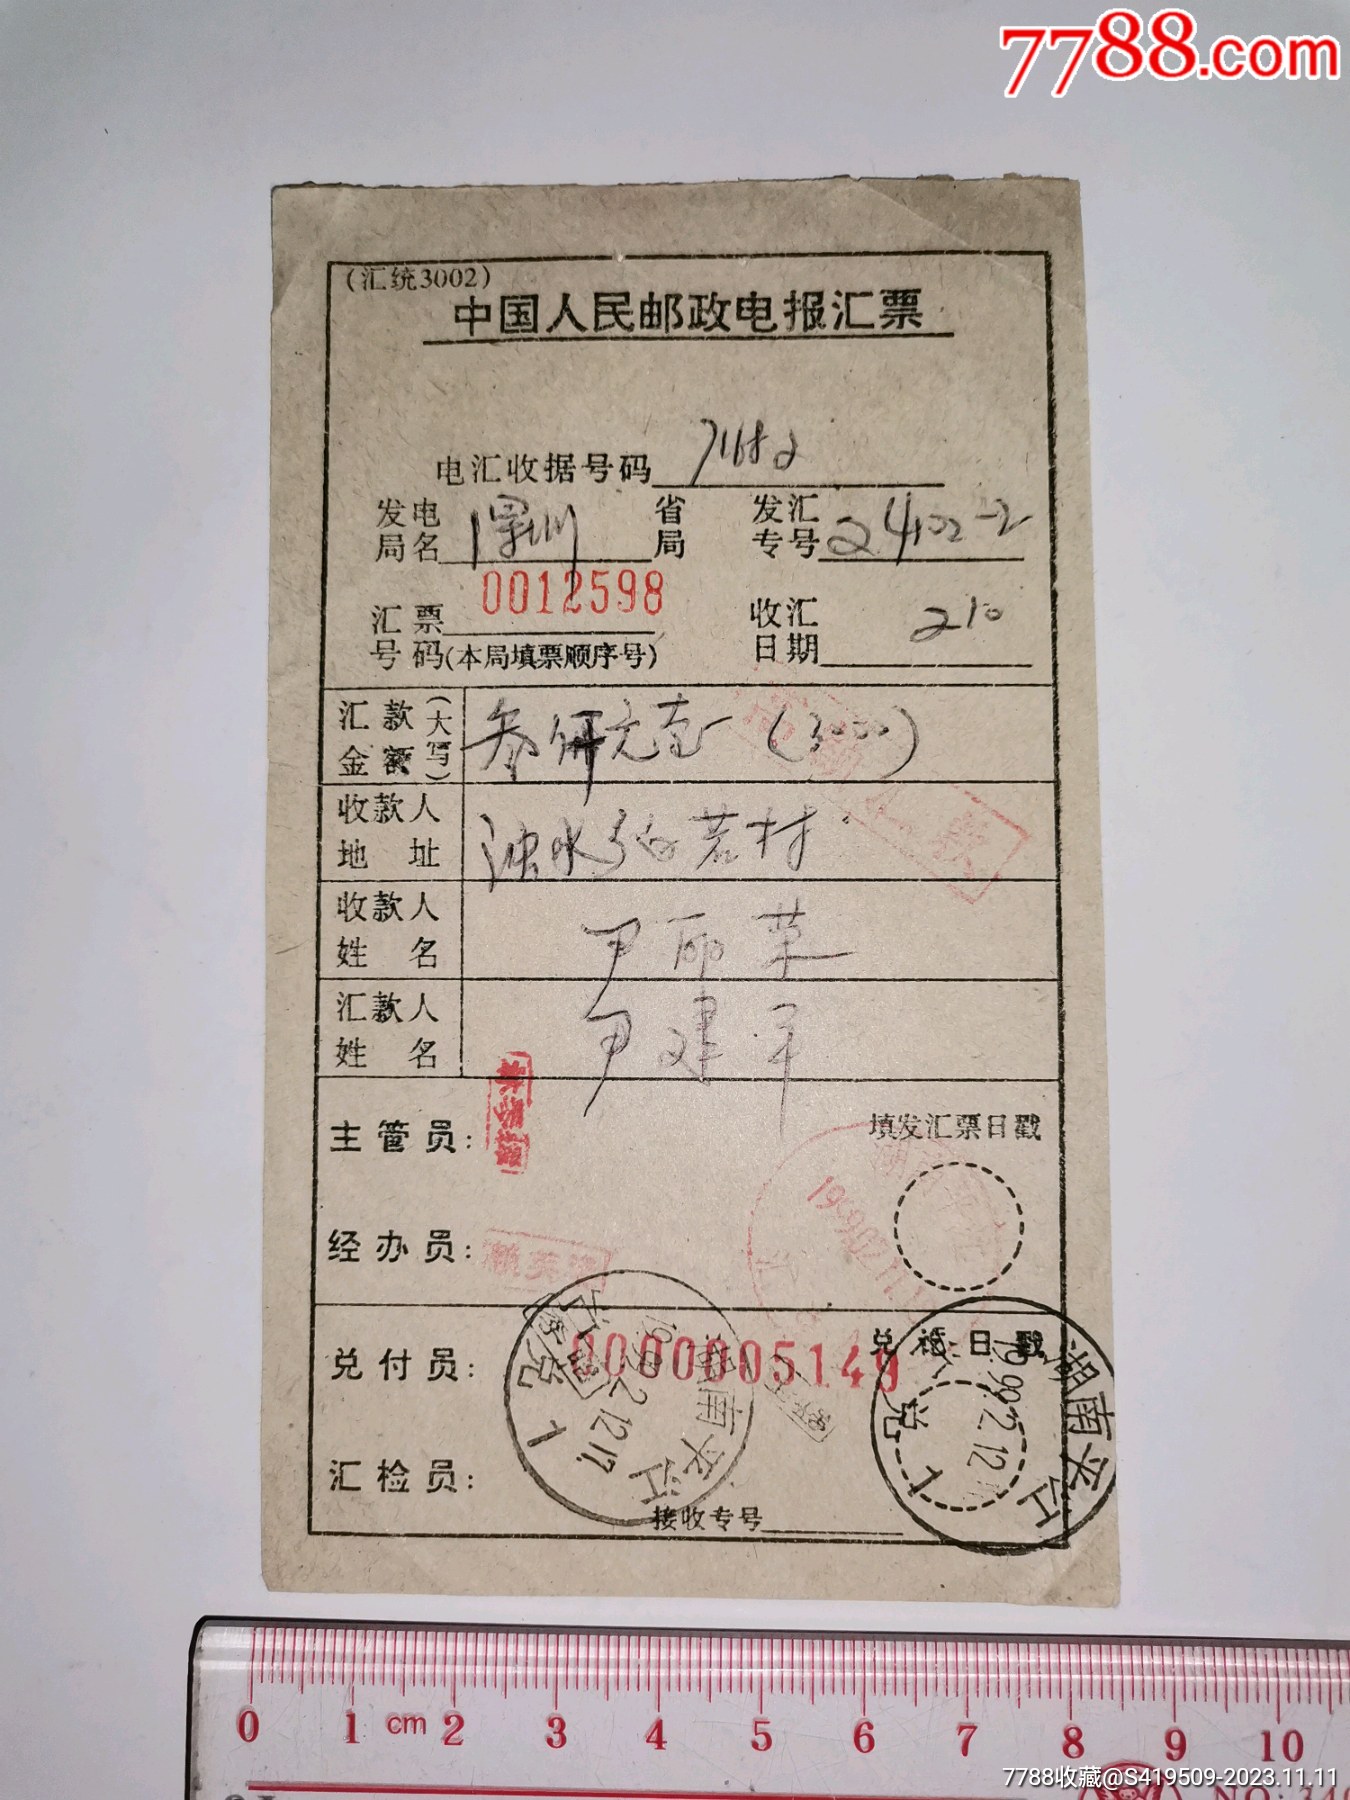 7788.com
(汇统3002)
中国人民邮政电报汇票
电汇收据号码
发电局名 深圳 省局
发汇专号 24102-2
汇票号码 0012598
(本局填票顺序号)
收汇日期 210
汇款金额(大写) 叁仟元整 (3000)
收款人地址
收款人姓名 尹丽英
汇款人姓名 尹建军
主管员:
填发汇票日戳
经办员:
兑付员: 0000005149
兑讫日戳
湖南平江
1999.2.12.17
兑
1
湖南平江
1999.2.12
兑
1
汇检员:
接收专号
0 1 cm 2 3 4 5 6 7 8 9 10
7788收藏@S419509-2023.11.11